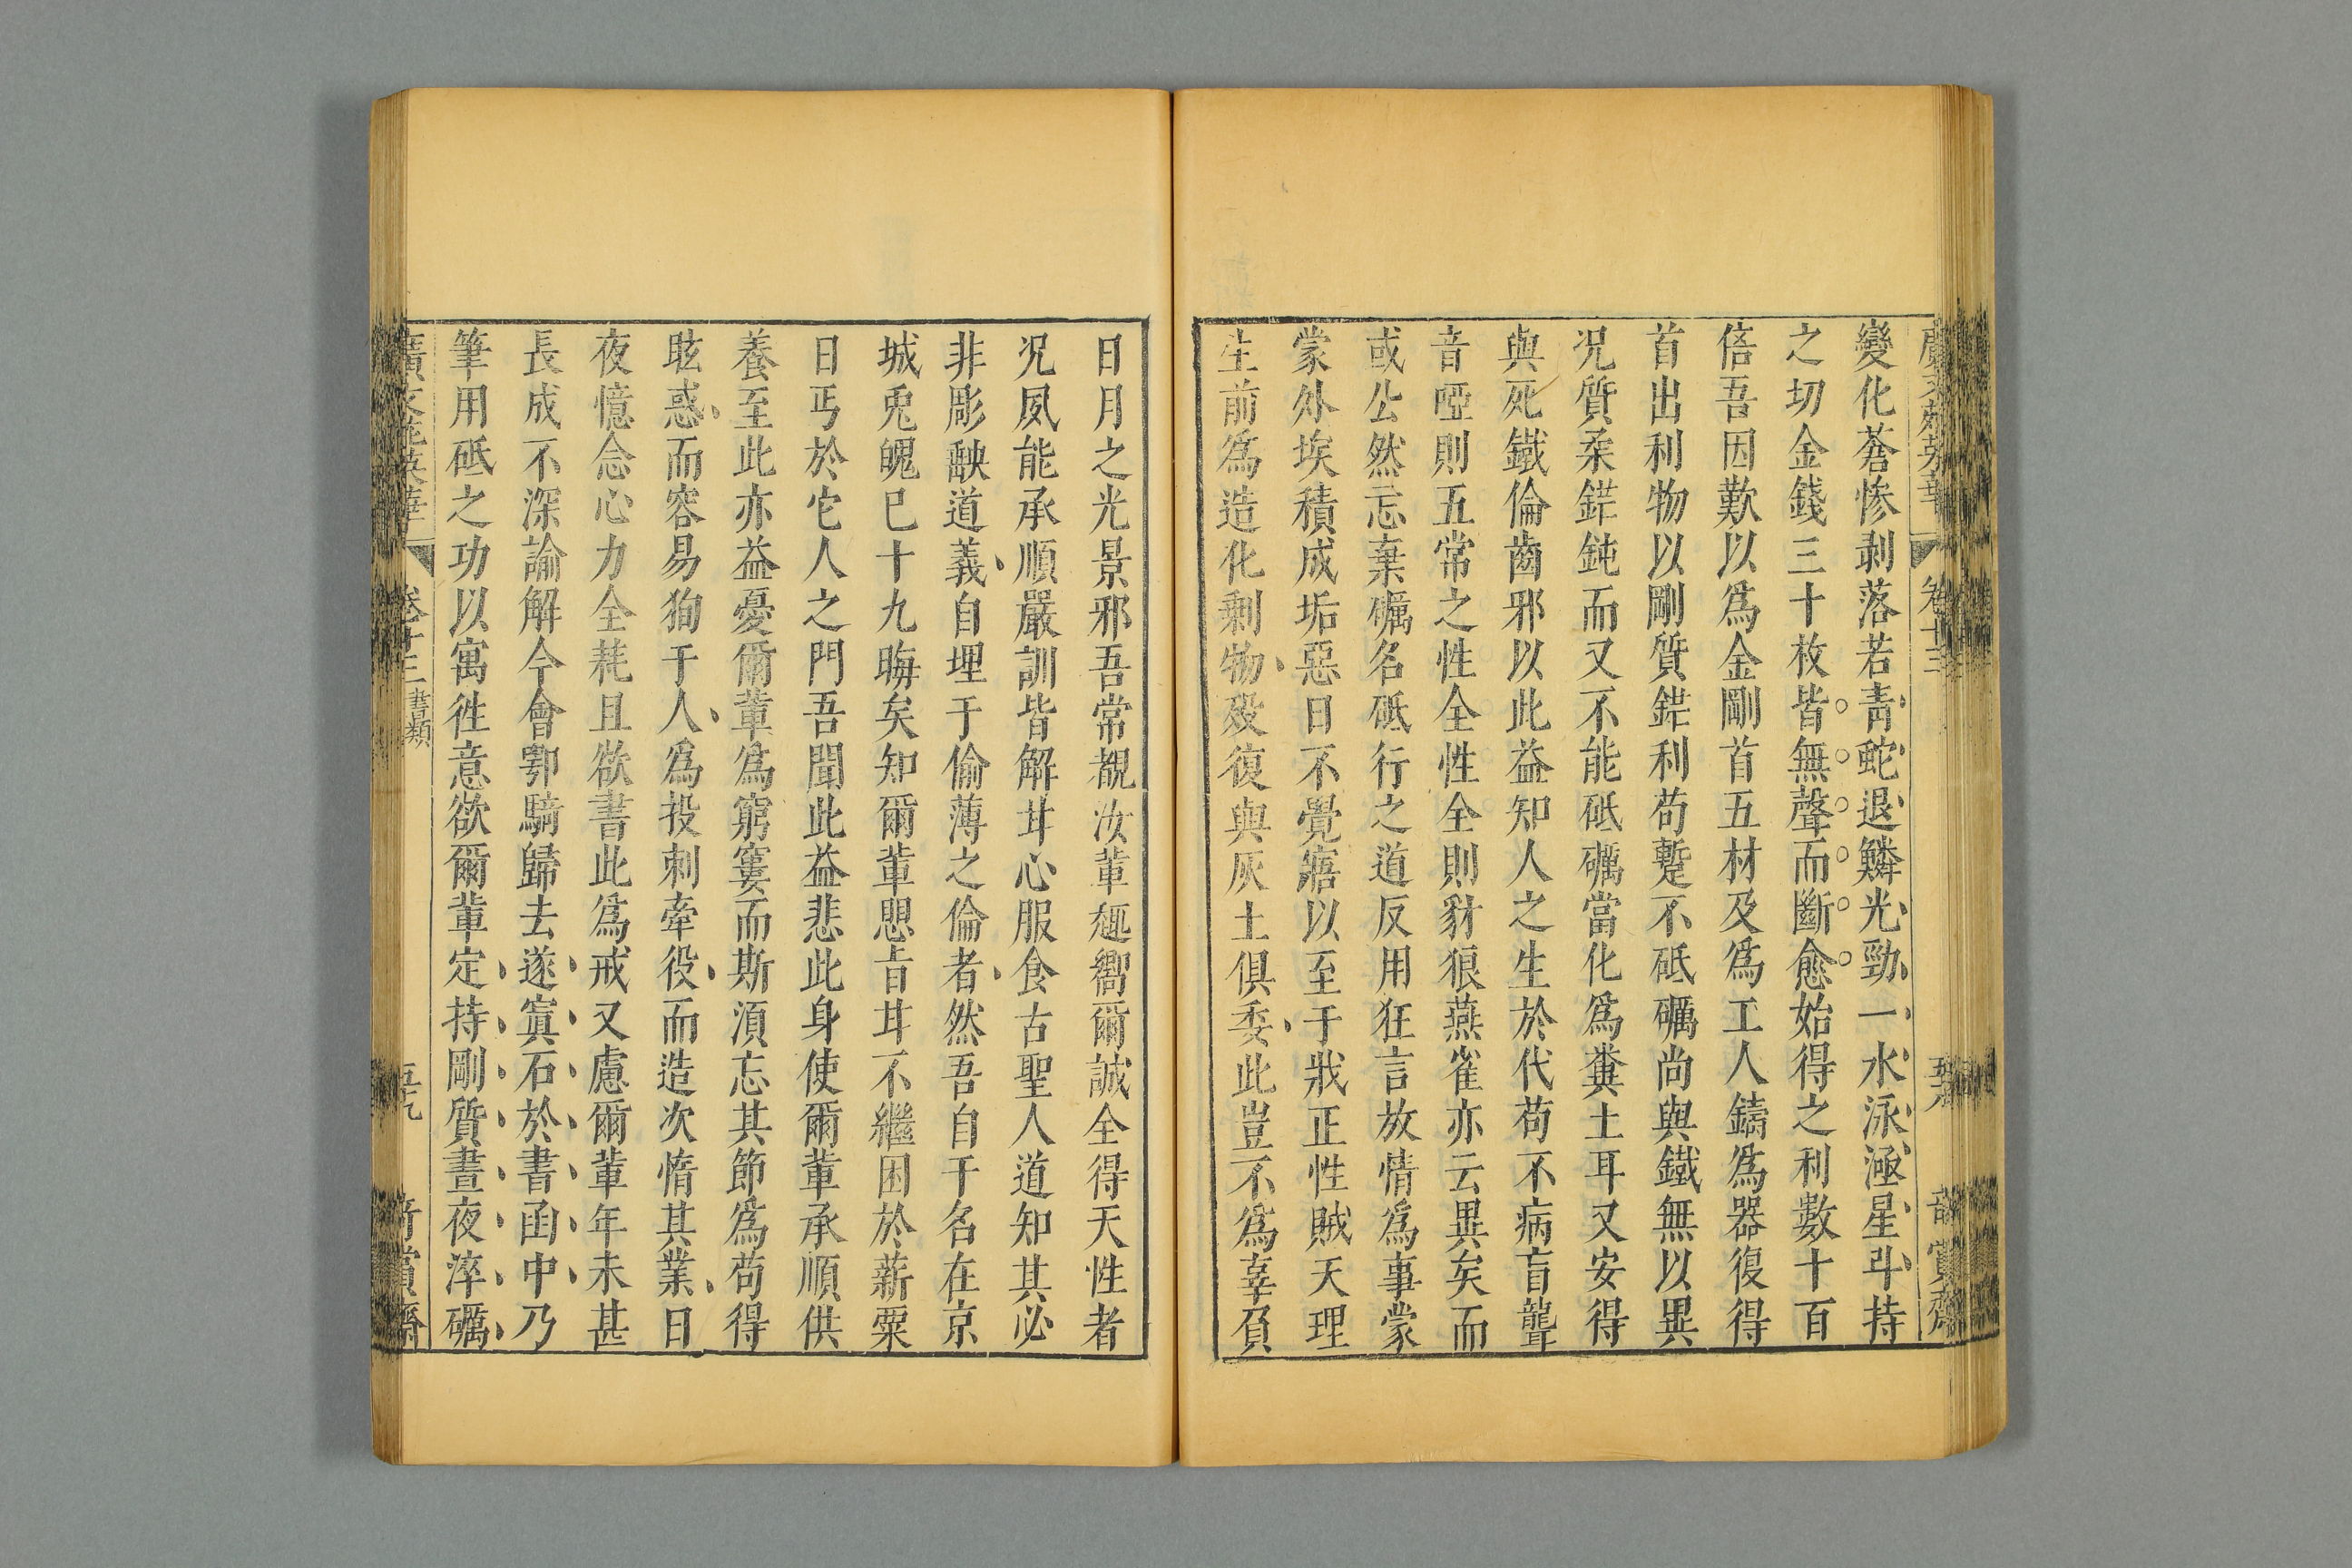 變化蒼慘剥落若青蛇退鱗光勁一水泳涵星斗持
之切金錢三十枚皆無聲而斷愈始得之利數十百
倍吾因歎以爲金剛首五材及爲工人鑄爲器復得
首出利物以剛質鋩利苟暫不砥礪尚與鐵無以異
况質柔鋩鈍而又不能砥礪當化爲糞土耳又安得
與死鐵倫齒邪以此益知人之生於代苟不病盲聾
音啞則五常之性全性全則豺狼燕雀亦云異矣而
或公然忘棄礪名砥行之道反用狂言放情爲事蒙
蒙外埃積成垢惡日不覺寤以至于戕正性賊天理
生前爲造化剩物殁復與灰土俱委此豈不爲辜負
日月之光景邪吾常覩汝輩趣嚮爾誠全得天性者
况夙能承順嚴訓皆解甘心服食古聖人道知其必
非彫缺道義自埋于偷薄之倫者然吾自干名在京
城兎魄已十九晦矣知爾輩思旨甘不繼困於薪粟
日丐於它人之門吾聞此益悲此身使爾輩承順供
養至此亦益憂爾輩爲窮窶而斯須忘其節爲苟得
眩惑而容易狥于人爲投刺牽役而造次惰其業日
夜憶念心力全耗且欲書此爲戒又慮爾輩年未甚
長成不深諭解今會鄂騎歸去遂寘石於書函中乃
筆用砥之功以寓徃意欲爾輩定持剛質晝夜淬礪
廣文苑英華 卷十三 書類